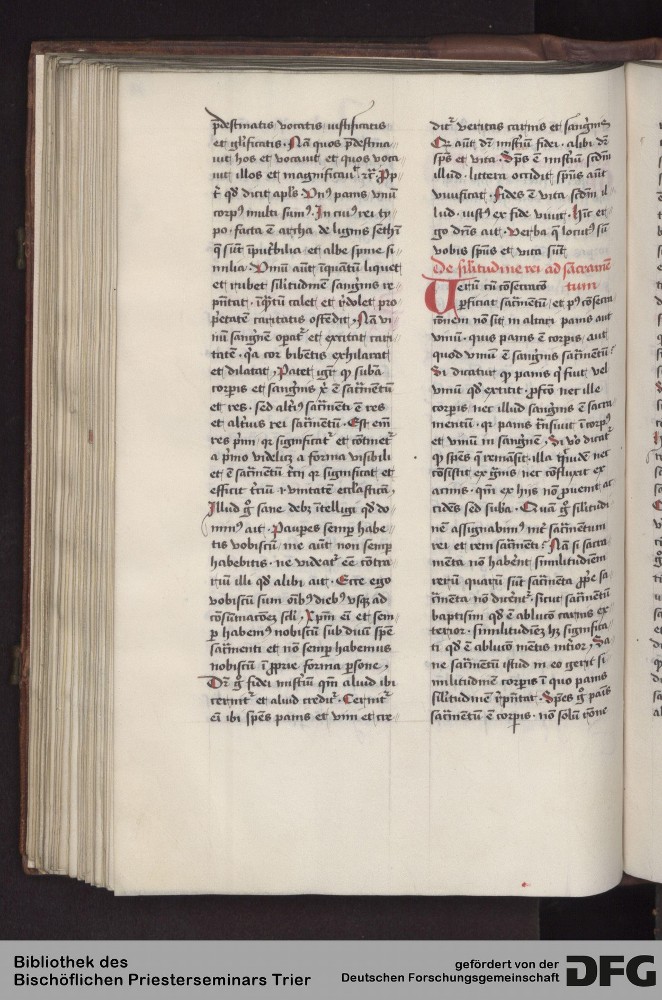 p̄destinatis vocatis iustificatis
et gl̄ificatis · Nā quos p̄destina//
uit hos et vocauit et quos voca
uit illos et magnificauı᷑ ·
t᷑ qd̄ dicit apl̄s · Vn᷒ panis vnū
corp᷒ multi sum᷒ · In cui᷒ rei ty//
po · facta ē archa de lignis sethī
q̄ sūt īput̄bilia · et albe spine si//
milia · Vinū aūt īquātū liquet
et rubet silitudinē sanḡnis re//
p̄ntat · īq̄tū calet et r̄dolet pro
p̄etatē caritatis oñdit · Nā vi//
nū sangnē opat᷑ et excitat cari
tatē · q̄a cor bibētis exhilarat
et dilatat · Patet igr̄ qꝫ suba
corpis et sanḡnis x̄ ē sac̄mentū
et res · sed alt̄i᷒ sac̄menti ē res
et alt̄ius rei sac̄mentū · Est em̄
res p̄im qr significat᷑ et cōtinet᷑
a p̄mo videlicꝫ a forma visibili
et ē sac̄mentū t̄cii qr significat et
efficit t̄ciū ı vnitatē ecl̄iasticā ·
Illud g̊ sane debꝫ ītelligi qd̄ do//
min᷒ ait · Paupes semp habe//
tis vobiscū me aūt non semp
habebitis · ne videat᷑ eē cōtra//
riū illi qd̄ alibi ait · Ecce ego
vobiscū sum oīb᷒ dieb᷒ vsqꝫ ad
cōsūmacōeꝫ scl̄i · Xp̄m em̄ et sem//
p habem᷒ nobiscū sub diuīa spē
sac̄menti et nō semp habemus
nobiscū ī p̄prie forma psone ·
Dr̄ g̊ fidei mist̄iū qm̄ aliud ibi
cernit᷑ et aliud credit᷑ · Cernit᷑
em̄ ibi spēs panis et vini et cre//
dit᷑ veritas carnis et sanḡnis
Qr aūt dr̄ mist̄iū fidei · alibi dr̄
sp̄s et vita · Sp̄s ē mist̄iū scdm̄
illud · littera occidit sp̄us aūt
viuificat · fides ē vita scdm̄ il
lud · iust᷒ ex fide viuit · Hīc et
go dn̄s ait · Verba q̄ locut᷒ sū
vobis sp̄us et vita sūt
De silitudine rei ad sacramē
tum
Verū cū cōsecracō
pficiat sac̄mentū et p᷒ cōsecra
cōnem nō sit in altari panis aut
vinū · quō panis ē corpis aut
quod vinū ē sanḡnis sac̄mentū?
Si dicatur qꝫ panis q̄ fiut vel
vinū qd̄ extitit · pfcō nec ille
corpis nec illud sanḡnis ē sacra
mentū · qr panis t̄nsiuit ī corp᷒
et vinū in sangnē · Si vo dicat᷑
qꝫ spēs q̄ remāsit · illa qͥdē nec
cōsistit ex ḡnis nec cōfluxit ex
acinis · qm̄ ex his nō p̄uenit ac
cidēs sed suba · Cuā g̊ silitudi
nē assignabim᷒ int̄ sac̄mentum
rei et rem sac̄menti? Nā si sacra
mēta nō habēnt similitudinem
rerū quarū sūt sac̄mēta p̄prie sa
c̄mēta nō dicent᷑ · sicut sac̄mētū
baptismi qd̄ ē abluco carnis ex
terior · similitudinēꝫ hꝫ significa
ti qd̄ ē abluco mētis int̄ior · Sa
ne sac̄mentū istud in eo gerit si
militudinē corpis ī quo panis
silitudinē r̄p̄ntat · Spēs g̊ panis
sac̄mentū ē corpis · nō solū rōne
Bibliothek des
Bischöflichen Priesterseminars Trier
gefördert von der
Deutschen Forschungsgemeinschaft
DFG